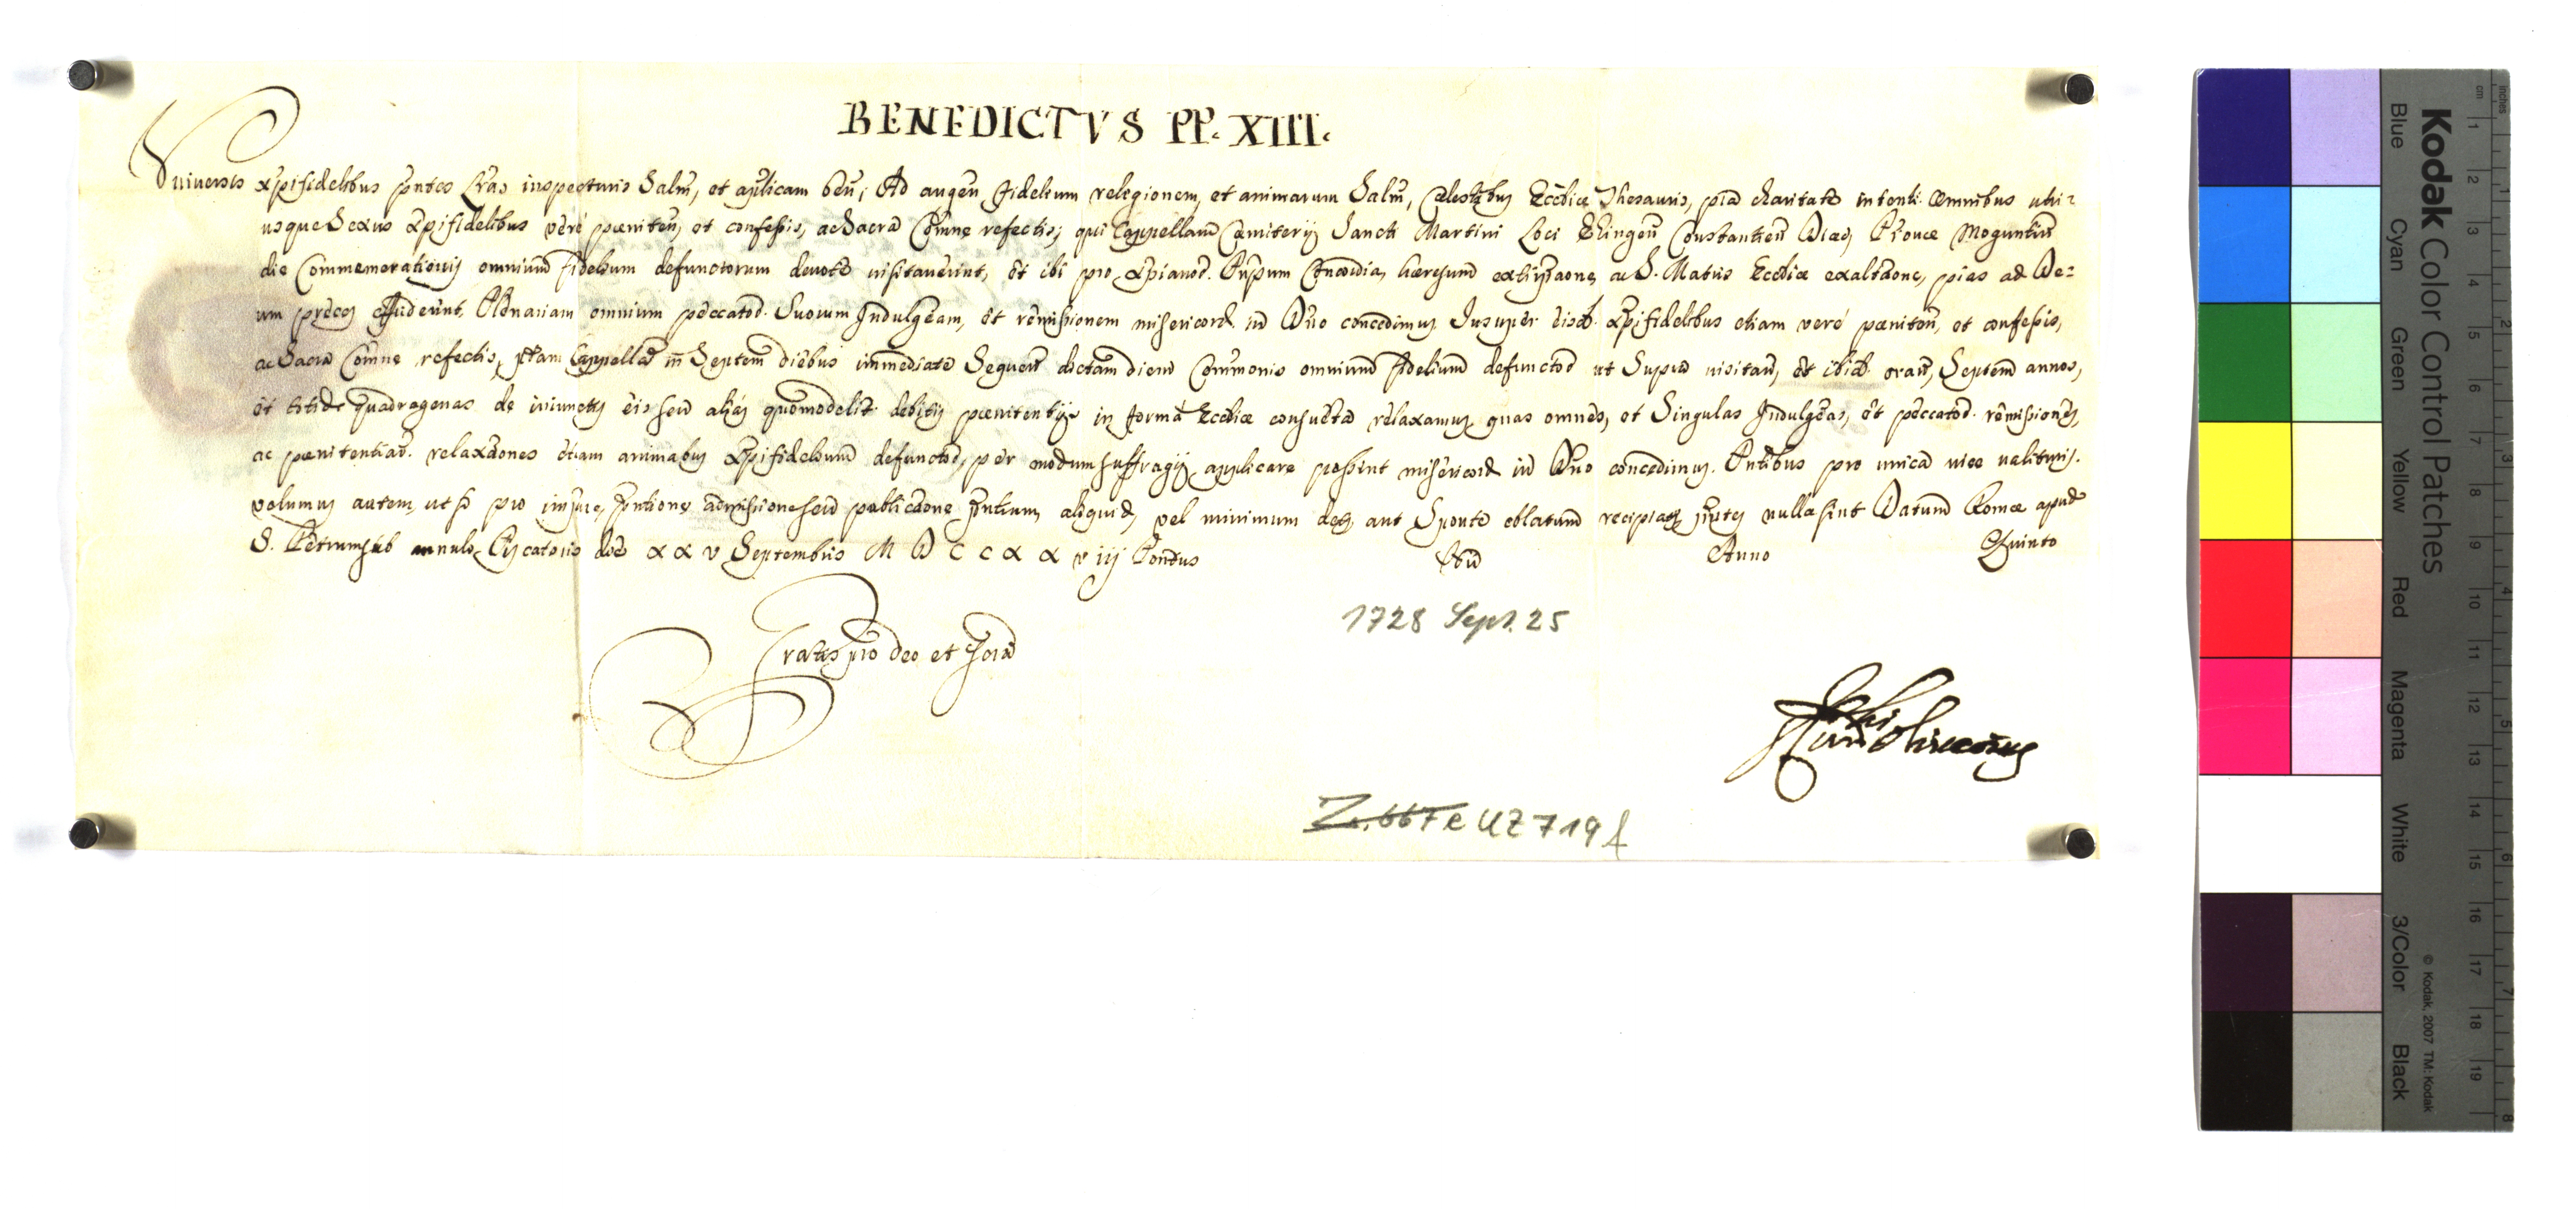 BENEDICTVS PP. XIII.
Vniversis xpifidelibus pntes lras inspecturis Salm, et aplicam ben; Ad augen fidelium religionem, et animarum Salm, cælestibus Eccliæ Thesauris, pia charitate intenti omnibus utri=
usque Sexus xpifidelibus verè pæniten, et confessis, ac Sacra Comne refectis, qui Cappellam Cæmiterij Sancti Martini Loci Ehingen Constantien Diæc, Provcæ Moguntin
die Commemorationis omnium fidelium defunctorum devotè visitaverint, et ibi pro xpianor. Prnpum Concordia, hæresum extirpaone, ac S. Matris Eccliæ exaltaone, pias ad De=
um preces effuderint, Plenariam omnium peccator. Suorum Indulgeam, et remissionem misericord in Dno concedimus Insuper eisd. xpifidelibus etiam verè pæniten, et confessis,
ac Sacra Comne refectis, ptam Cappellam in Septem diebus immediatè Sequen dictam diem Commonis omnium fidelium defunctor ut Supra visitan, et ibid. oran, Septem annos,
et totid quadragenas de iniunctis eis seu aliàs quomodolit debitis pænitentijs in forma Eccliæ consueta relaxamus quas omnes, et Singulas Indulgeas, et peccator. remissiones,
ac pænitentiar. relaxaones etiam animabus xpifidelium defunctor, per modum suffragij applicare possint misericord in Dno concedimus. Pntibus pro unica vice valituris.
volumus autem, ut si pro impne, pntione admissione seu publicaone pntium aliquid, vel minimum det, aut Sponte oblatum recipiat pntes nullæ sint Datum Romæ apud
S. Petrum sub annulo Piscatoris die x x v Septembris M D C C x x v iij Pontus Nri Anno Quinto
Gratis pro deo et Scra
1728 Sept. 25
Z. 667 e UZ 719 f
Kodak Color Control Patches
Blue
Cyan
Green
Yellow
Red
Magenta
White
3/Color
Black
© Kodak, 2007 TM: Kodak
inches
cm
1
2
3
4
5
6
7
8
9
10
11
12
13
14
15
16
17
18
19
1
2
3
4
5
6
7
8